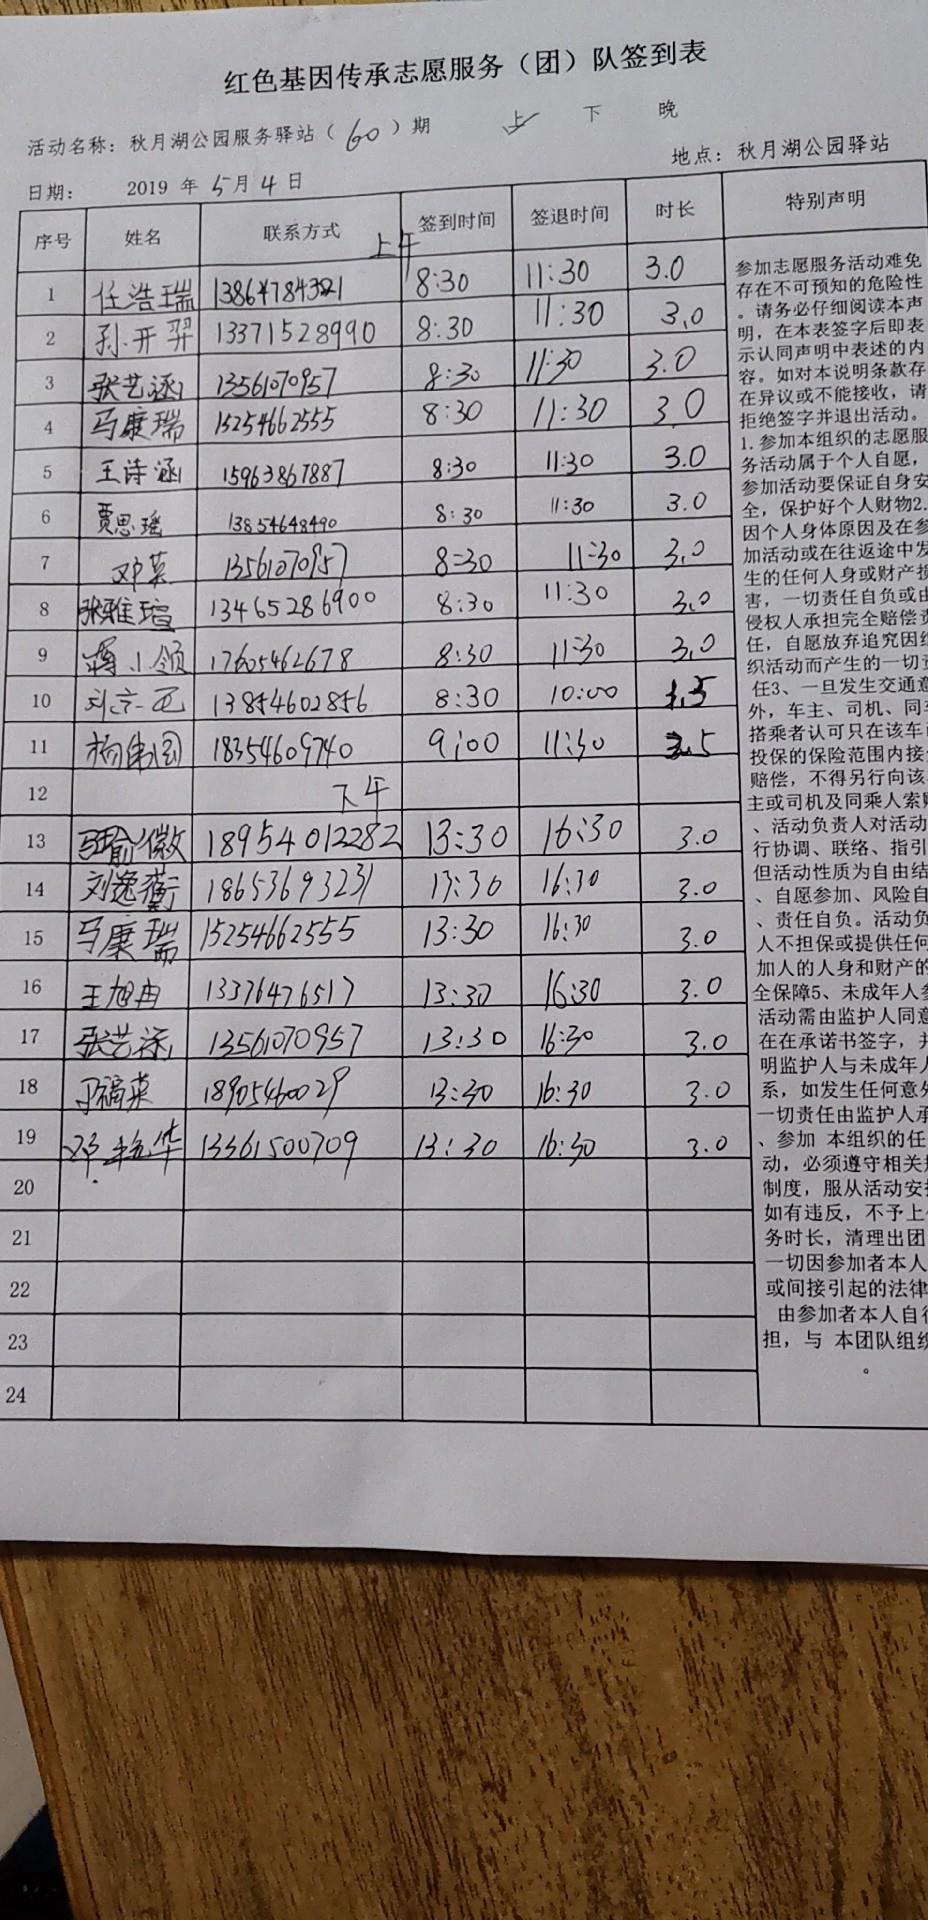 红色基因传承志愿服务（团）队签到表
活动名称：秋月湖公园服务驿站（60）期 上 下 晚
地点：秋月湖公园驿站
日期： 2019 年 5月 4 日
序号 姓名 联系方式 签到时间 签退时间 时长 特别声明
上午
1 任浩瑞 13864784321 8:30 11:30 3.0
2 孙开羿 13371528990 8:30 11:30 3.0
3 张艺涵 13561070957 8:30 11:30 3.0
4 马康瑞 15254662555 8:30 11:30 3.0
5 王诗涵 15963867887 8:30 11:30 3.0
6 贾思瑶 13854648490 8:30 11:30 3.0
7 邓英 13561070957 8:30 11:30 3.0
8 张雅瑄 13465286900 8:30 11:30 3.0
9 小领 17605462678 8:30 11:30 3.0
10 13854602856 8:30 10:00 1.5
11 18354609740 9:00 11:30 2.5
12 下午
13 18954012282 13:30 16:30 3.0
14 刘逸 18653693231 13:30 16:30 3.0
15 马康瑞 15254662555 13:30 16:30 3.0
16 王旭冉 13376476517 13:30 16:30 3.0
17 张艺涵 13561070957 13:30 16:30 3.0
18 18905460029 13:30 16:30 3.0
19 邓 华 13361500709 13:30 16:30 3.0
20
21
22
23
24
参加志愿服务活动难免
存在不可预知的危险性
。请务必仔细阅读本声
明，在本表签字后即表
示认同声明中表述的内
容。如对本说明条款存
在异议或不能接收，请
拒绝签字并退出活动。
1.参加本组织的志愿服
务活动属于个人自愿，
参加活动要保证自身安
全，保护好个人财物2.
因个人身体原因及在参
加活动或在往返途中发
生的任何人身或财产损
害，一切责任自负或由
侵权人承担完全赔偿责
任，自愿放弃追究因组
织活动而产生的一切责
任3、一旦发生交通意
外，车主、司机、同车
搭乘者认可只在该车
投保的保险范围内接
赔偿，不得另行向该
主或司机及同乘人索
、活动负责人对活动
行协调、联络、指引
但活动性质为自由结
、自愿参加、风险自
、责任自负。活动负
人不担保或提供任何
加人的人身和财产的
全保障5、未成年人参
活动需由监护人同意
在在承诺书签字，并
明监护人与未成年人
系，如发生任何意外
一切责任由监护人承
、参加 本组织的任
动，必须遵守相关
制度，服从活动安
如有违反，不予上
务时长，清理出团
一切因参加者本人
或间接引起的法律
由参加者本人自行
担，与 本团队组织
。